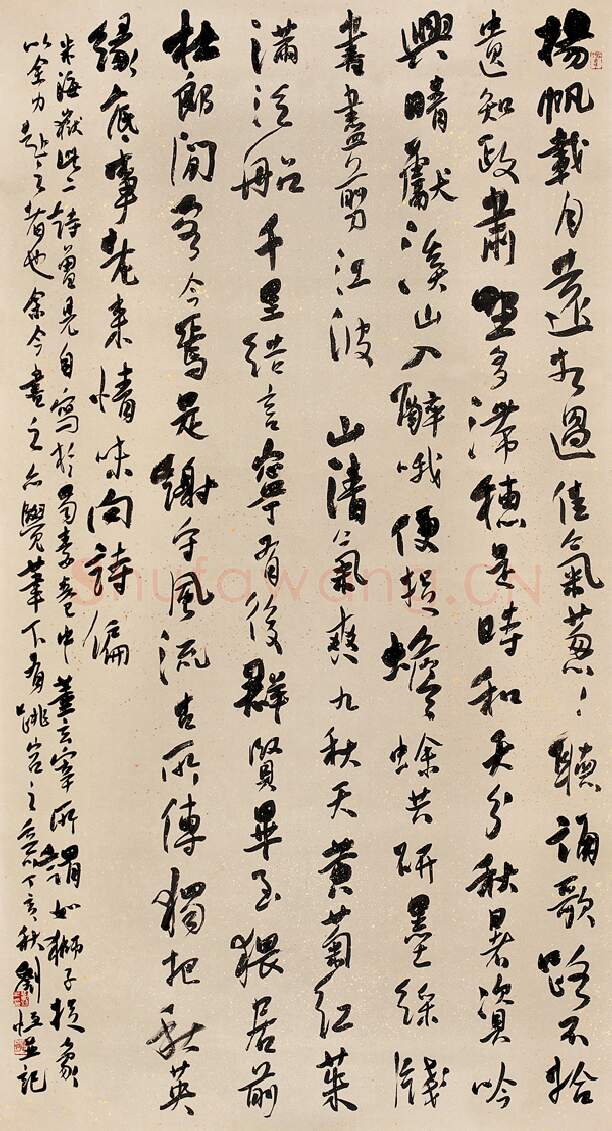 揚帆載月遠相過佳氣葱〻聽誦歌路不拾
遺知政肅野多滯穗是時和天分秋暑資吟
興晴獻溪山入醉哦便捉蟾蜍共研墨綵牋
書盡剪江波 山清氣爽九秋天黃菊紅茱
滿泛船千里結言寧有後群賢畢至猥居前
杜郎閒客今焉是謝守風流古所傳獨把秋英
緣底事老來情味向詩偏
米海嶽此二詩曾見自寫於蜀素卷中董玄宰所謂如獅子捉象
以全力赴之者也余今書之亦覺筆下有跳宕之意丁亥秋劉恒並記
Shufawang.CN